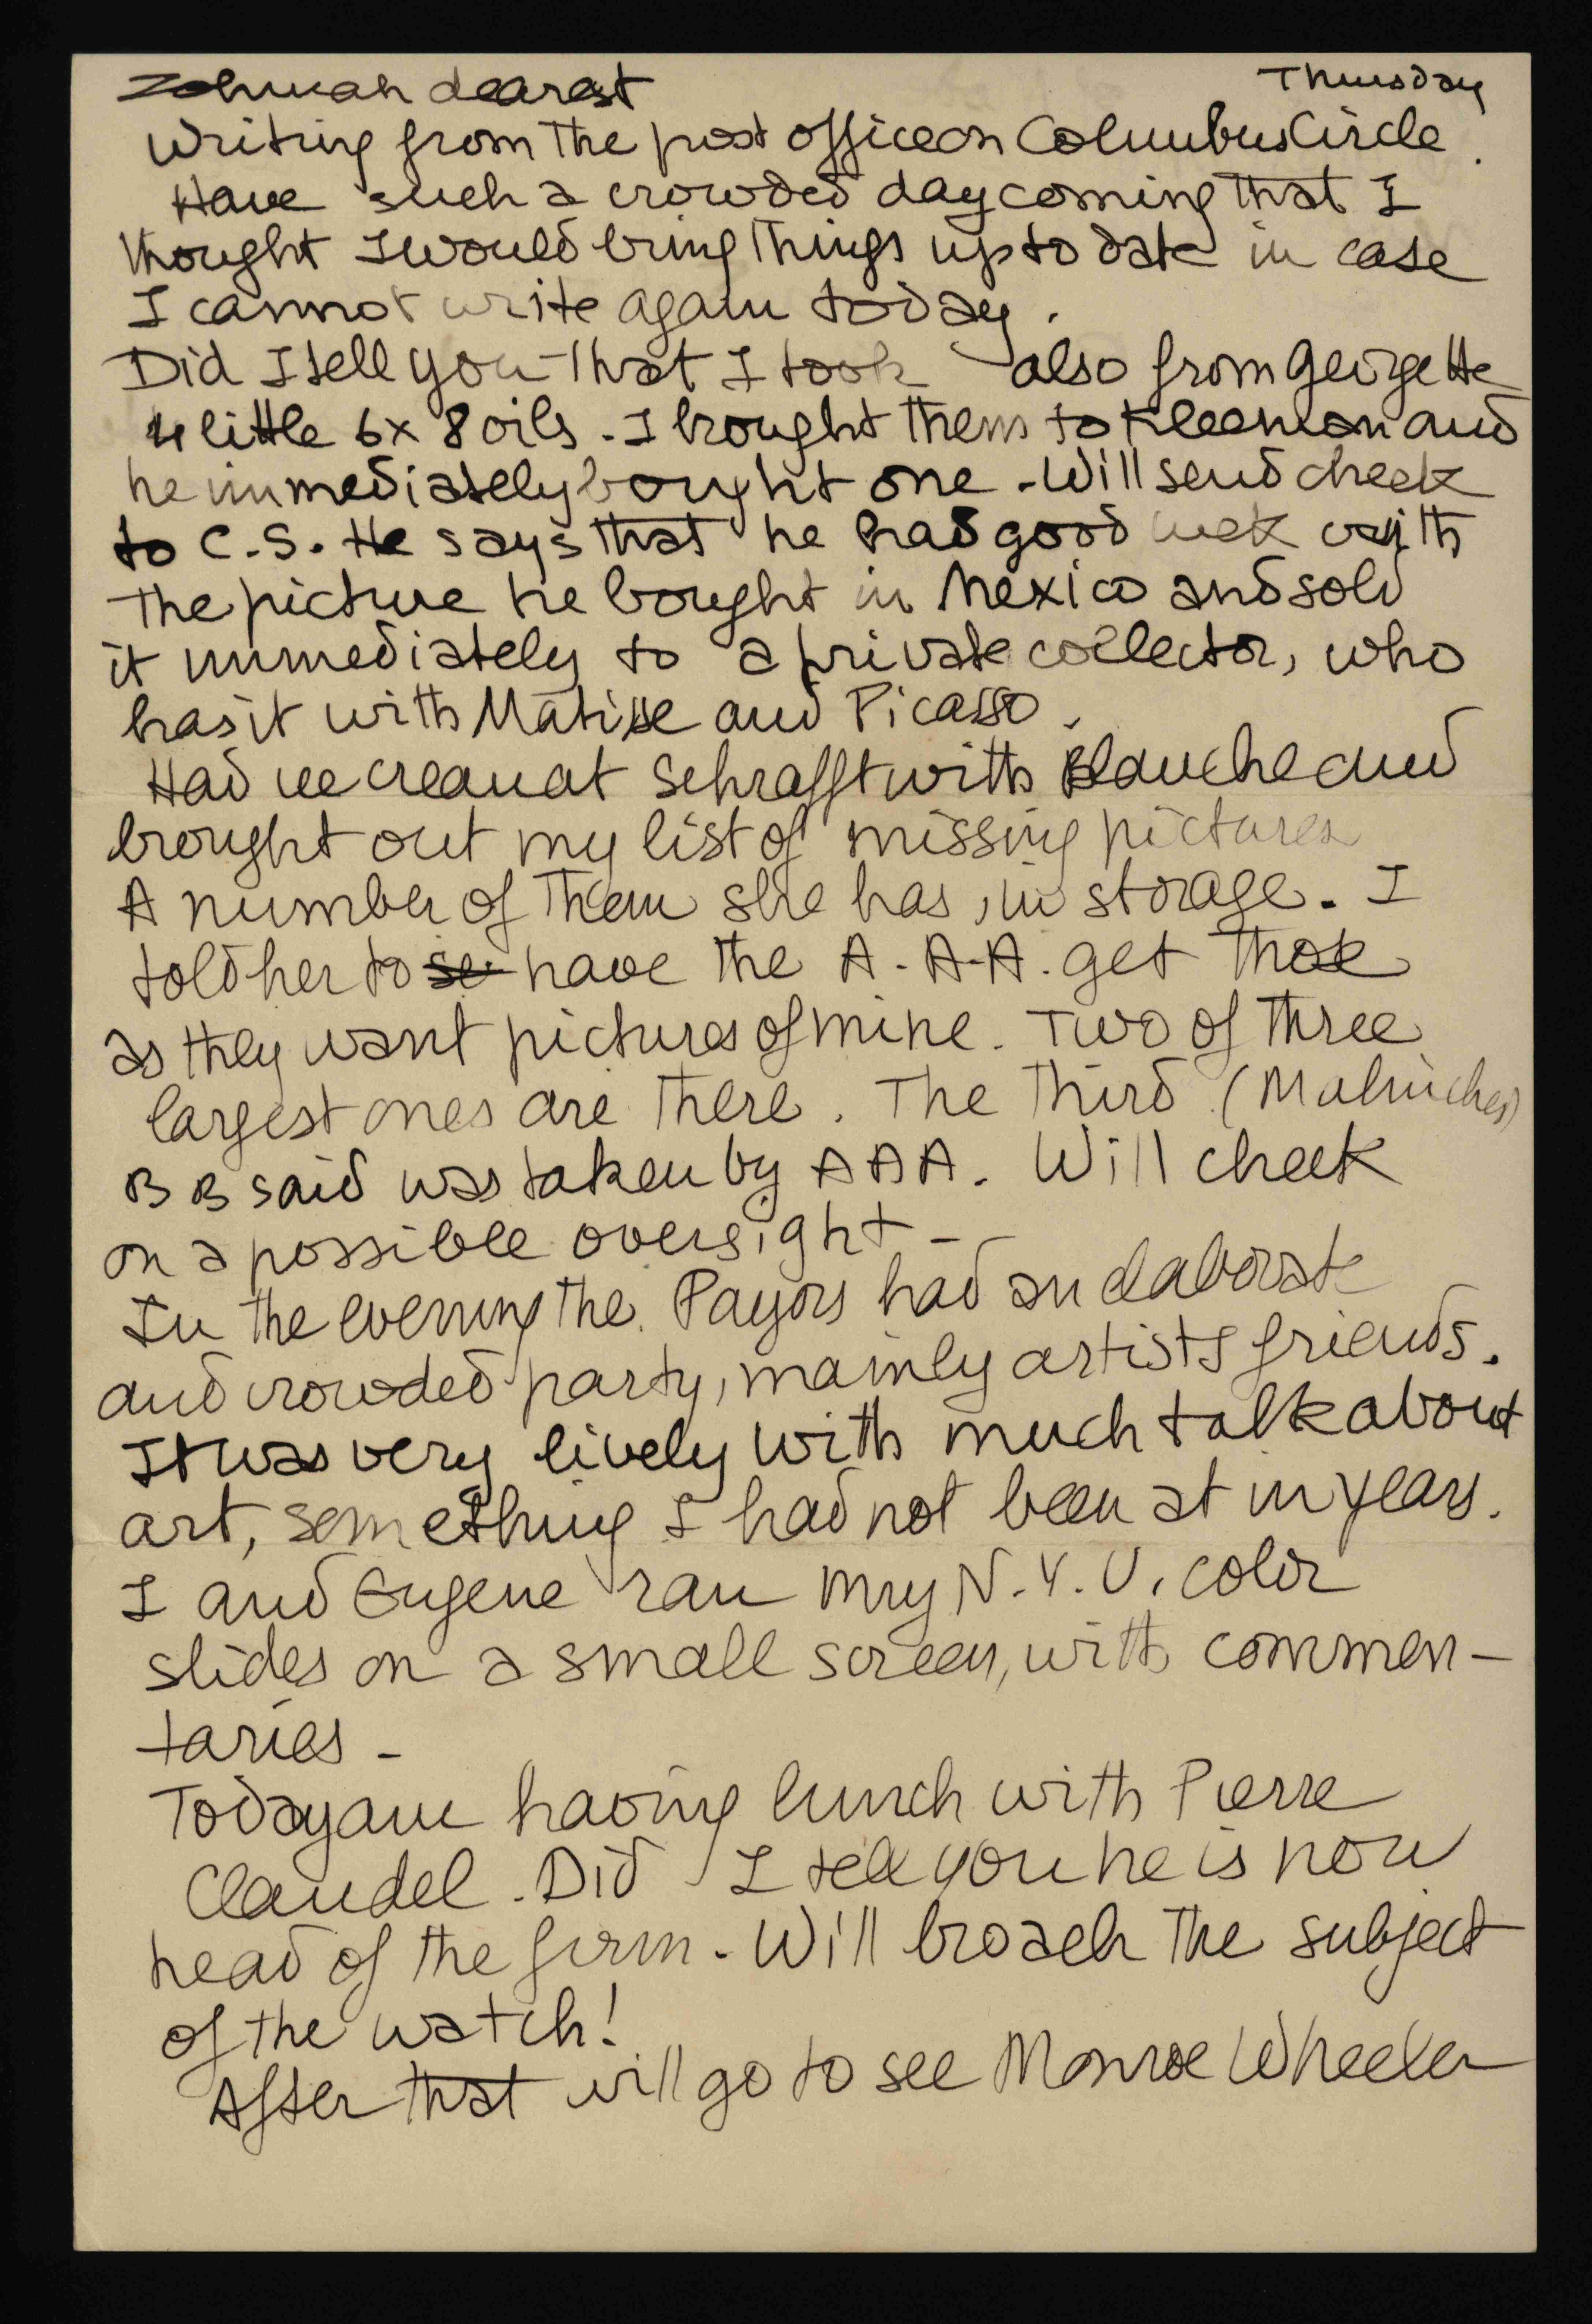 Zohmah dearest Thursday
Writing from the post office on Columbus Circle.
Have such a crowded day coming that I
thought I would bring things up to date in case
I cannot write again today.
Did I tell you that I took also from Georgette
4 little 6x8 oils. I brought them to Kleeman and
he immediately bought one. Will send check
to C.S. He says that he had good luck with
the picture he bought in Mexico and sold
it immediately to a private collector, who
has it with Matisse and Picasso.
Had ice cream at Schrafft with Blanche and
brought out my list of missing pictures
A number of them she has, in storage. I
told her to se have the A.A.A. get those
as they want pictures of mine. Two of three
largest ones are there. The third (Malinches)
B B said was taken by AAA. Will check
on a possible oversight -
In the evening the Payors had an elaborate
and crowded party, mainly artists friends.
It was very lively with much talk about
art, something I had not been at in years.
I and Eugene ran my N.Y.U. color
slides on a small screen, with commen-
taries -
Today am having lunch with Pierre
Claudel. Did I tell you he is now
head of the firm. Will broach the subject
of the watch!
After that will go to see Monroe Wheeler